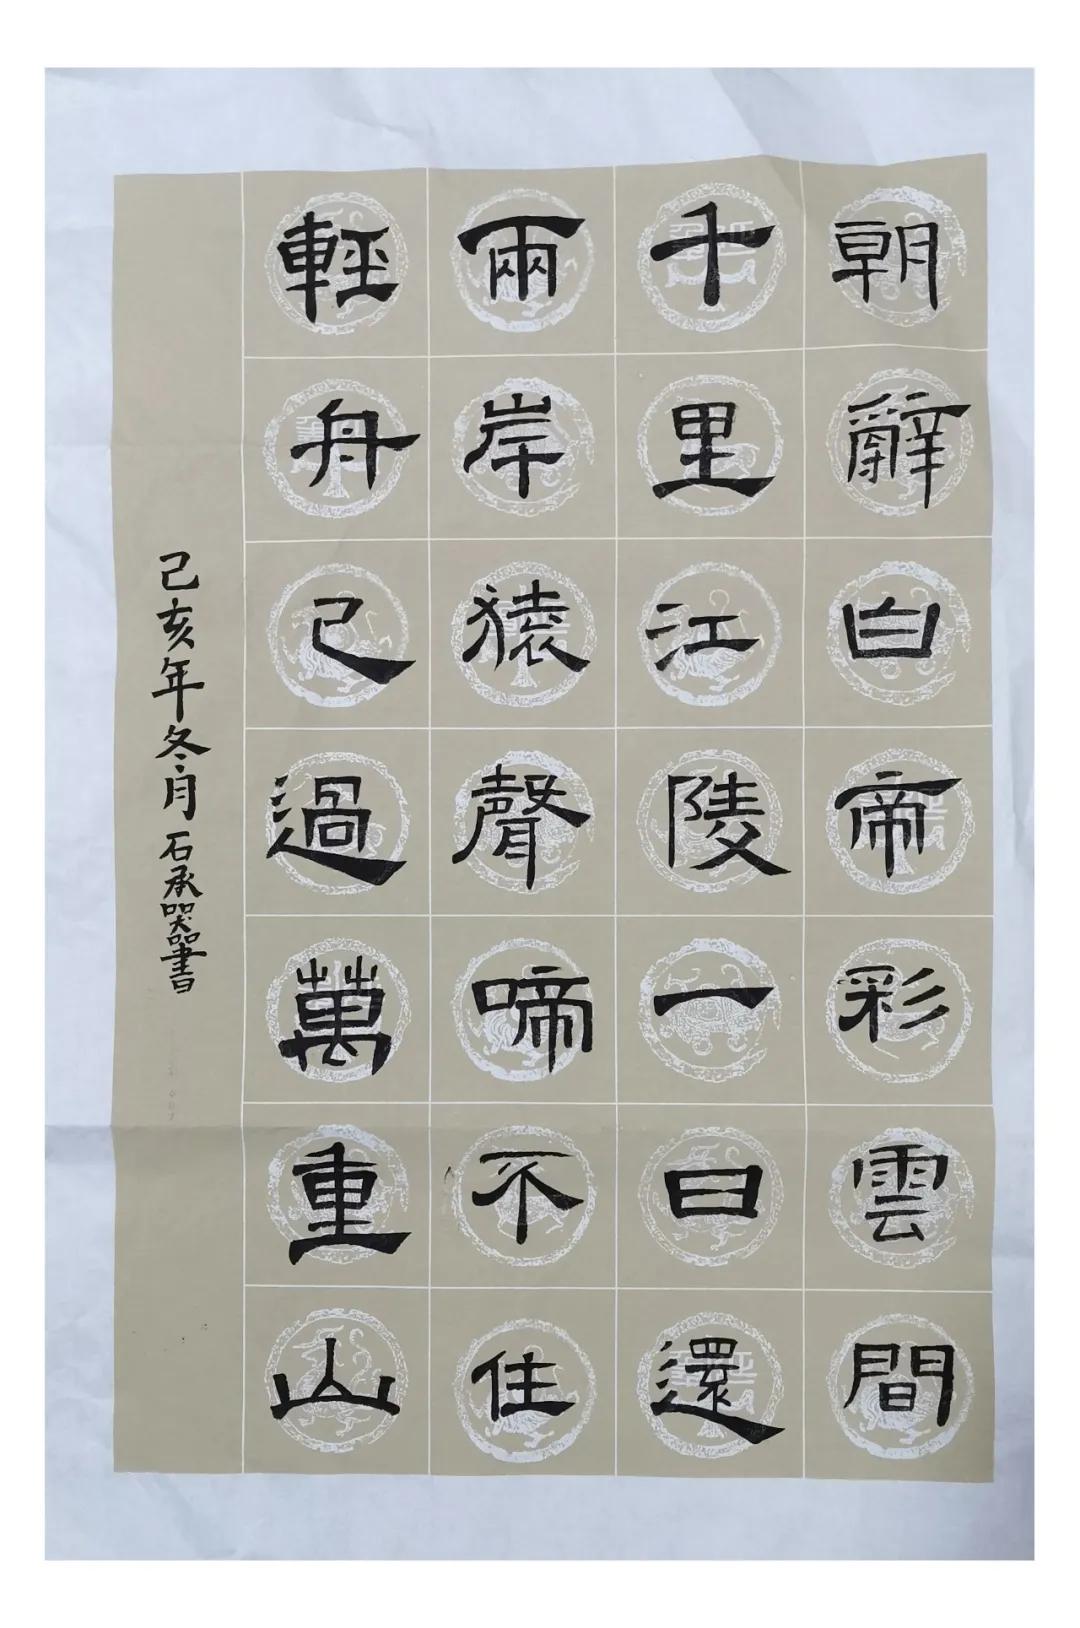 朝辭白帝彩雲間
千里江陵一日還
兩岸猿聲啼不住
輕舟已過萬重山
己亥年冬月石承器書